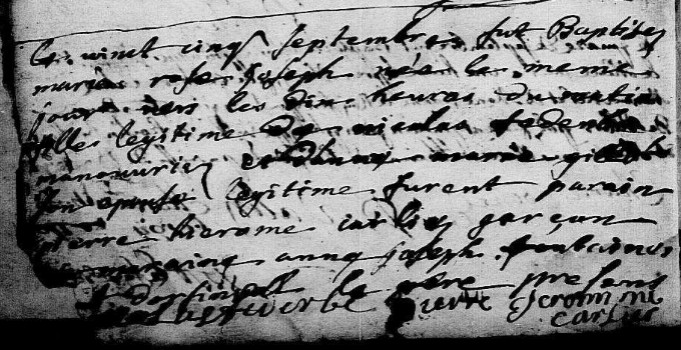 le vinct cinq septembre fut Baptisez
marie rose Joseph née le meme
jour vers les dix heures du matin
fille legitime de nicolas
manouvrier et d'anne marie
son epouse legitime furent parain
pierre hierome carlier garçon
maraine anne joseph fontaines
le père present
pierre Jeronime
carlier